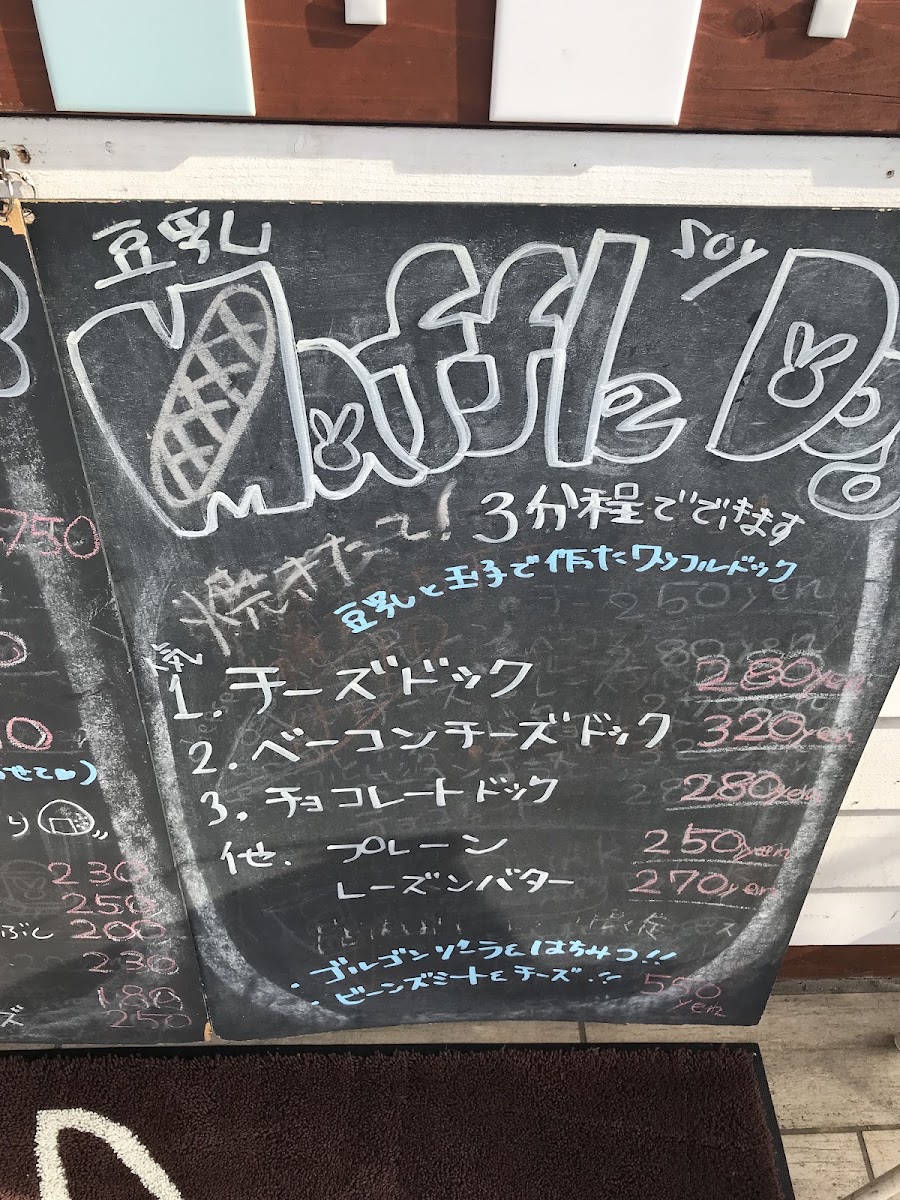 豆乳
Waffle
soy
Dog
焼きたて!
3分程でできます
豆乳と玉子で作ったワッフルドック
人気
1. チーズドック 280yen
2. ベーコンチーズドック 320yen
3. チョコレートドック 280yen
他. プレーン 250yen
レーズンバター 270yen
・ゴルゴンゾーラとはちみつ!!
・ビーンズミートとチーズ!!
yen
750
せて♥)
り
230
250
ぶし 200
230
180
ズ 250